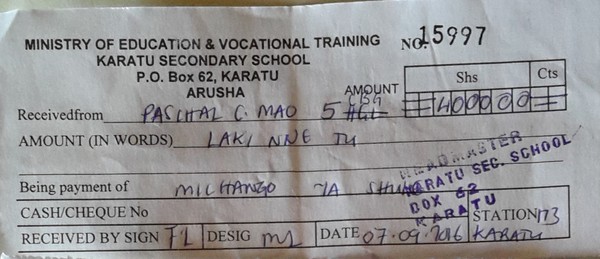 MINISTRY OF EDUCATION & VOCATIONAL TRAINING NO. 15997
KARATU SECONDARY SCHOOL
P.O. Box 62, KARATU
ARUSHA
AMOUNT Shs Cts
Received from PASCHAL C. MAO 5 =400000=
AMOUNT (IN WORDS) LAKI NNE TU
HEADMASTER
KARATU SEC. SCHOOL
BOX 62
KARATU
Being payment of MICHANGO YA
CASH/CHEQUE No
STATION
RECEIVED BY SIGN DESIG DATE 07.09.2016 KARATU